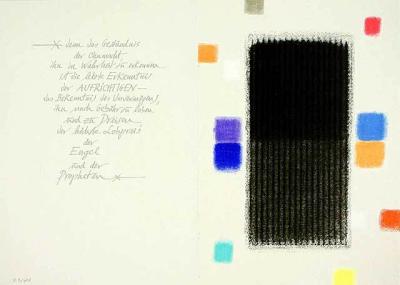 Denn das Geständnis
der Ohnmacht,
ihn in Wahrheit zu erkennen
ist die letzte Erkenntnis
der AUFRICHTIGEN —
das Bekenntnis des Unvermögens,
ihn nach Gebühr zu loben
und zu Preisen
der höchste Lobpreis
der
Engel
und der
Propheten